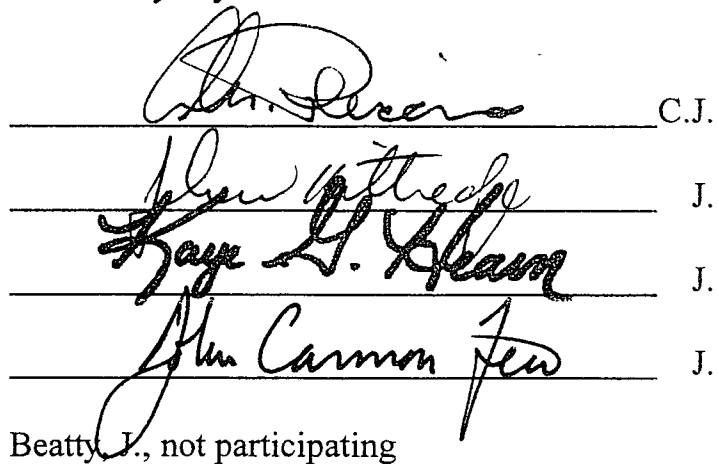 C.J.
J.
Kaye G. Hearn J.
John Cannon Few J.
Beatty, J., not participating